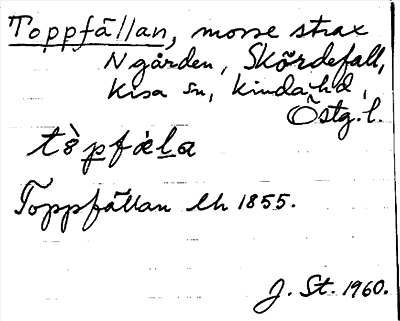 Toppfällan, mosse strax
N gården, Skördefall,
Kisa sn, Kinda hd,
Östg.l.
tòpfæ̀la
Toppfällan lh 1855.
J. St. 1960.